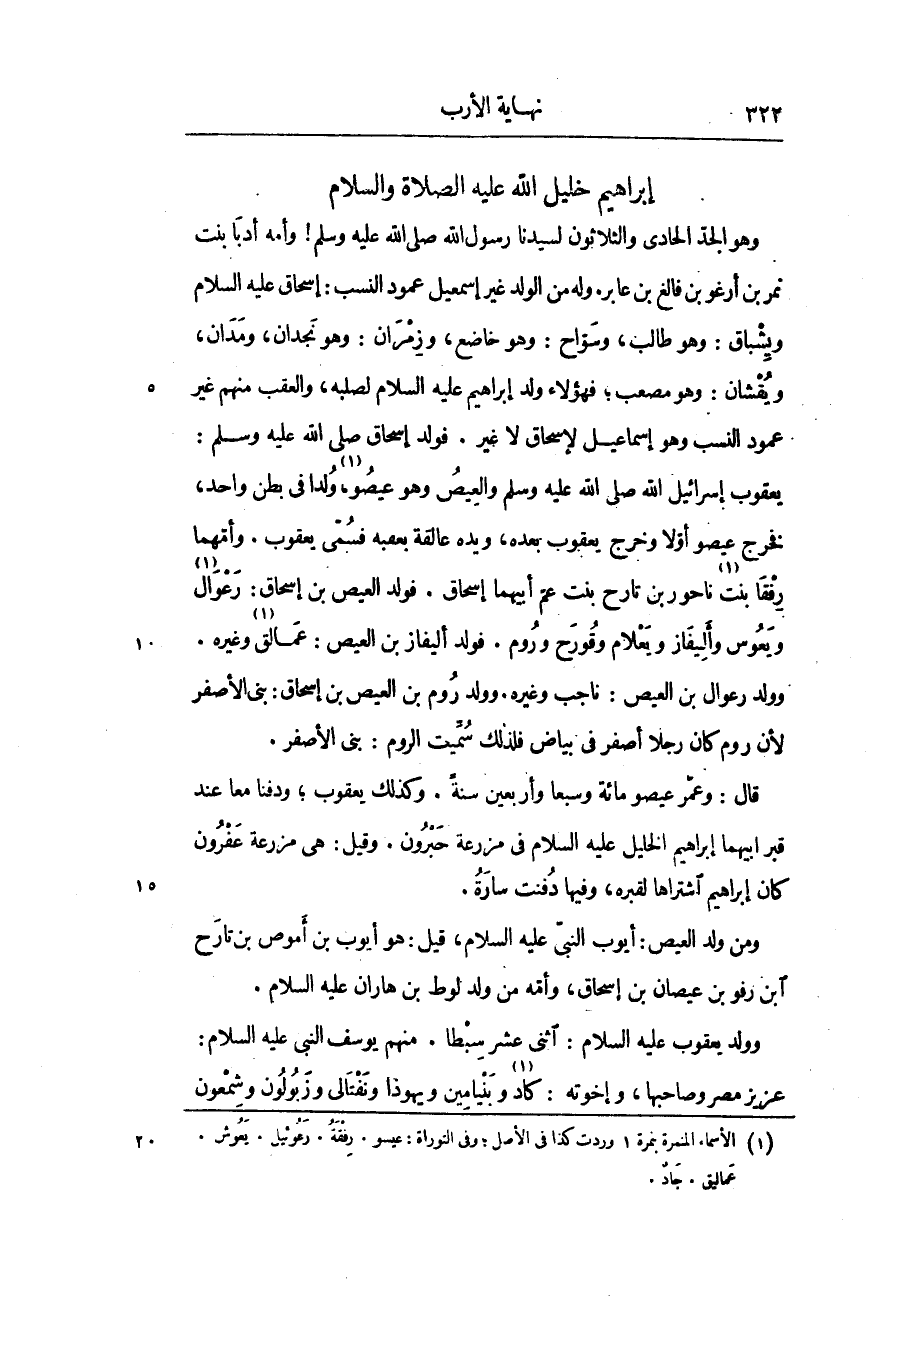 ٣٢٢ نهاية الأرب
إبراهيم خليل الله عليه الصلاة والسلام
وهو الجدّ الحادى والثلاثون لسيدنا رسول الله صلى الله عليه وسلم! وأمه أدبَا بنت
نمر بن أرغو بن فالغ بن عابر. وله من الولد غير إسمعيل عمود النسب: إسحاق عليه السلام
ويِشْباق : وهو طالب، وسَوَاح : وهو خاضع، وزِمْرَان : وهو نَجدان، ومَدَان،
ويُقْشان : وهو مصعب؛ فهؤلاء ولد إبراهيم عليه السلام لصلبه، والعقب منهم غير ٥
عمود النسب وهو إسماعيل لإسحاق لا غير . فولد إسحاق صلى الله عليه وسلم :
يعقوب إسرائيل الله صلى الله عليه وسلم والعِيصُ وهو عيصُو(١)، وُلدا فى بطن واحد،
فخرج عيصو أوّلا وخرج يعقوب بعده، ويده عالقة بعقبه فسُمّى يعقوب . وأمّهما
رِفْقَا(١) بنت ناحور بن تارح بنت عمّ أبيهما إسحاق . فولد العيص بن إسحاق: رَعْوَال(١)
ويَعُوس وأَلِيفَاز ويَعْلام وقُورَح ورُوم . فولد أليفاز بن العيص : عَمَالق(١) وغيره . ١٠
وولد رعوال بن العيص : ناجب وغيره. وولد رُوم بن العيص بن إسحاق: بنى الأصفر
لأن روم كان رجلا أصفر فى بياض فلذلك سُمِّيت الروم : بنى الأصفر .
قال : وعمّر عيصو مائة وسبعا وأربعين سنةً . وكذلك يعقوب ؛ ودفنا معا عند
قبر ابيهما إبراهيم الخليل عليه السلام فى مزرعة حَبْرُون . وقيل : هى مزرعة عَفْرُون
كان إبراهيم آشتراها لقبره، وفيها دُفنت سارَةُ . ١٥
ومن ولد العيص: أيوب النبىّ عليه السلام، قيل: هو أيوب بن أَموص بن تارَح
آبن رفو بن عيصان بن إسحاق، وأمّه من ولد لوط بن هاران عليه السلام .
وولد يعقوب عليه السلام : آثنى عشر سِبْطا . منهم يوسف النبى عليه السلام:
عزيز مصر وصاحبها، وإخوته : كاد(١) وبَنْيامِين ويهوذا ونَفْتَالى وزَبُولُون وشِمْعون
(١) الأسماء المنمرة بنمرة ١ وردت كذا فى الأصل؛ وفى التوراة : عيسو . رِفْقَةُ . رَعُوئيل . يَعُوش . ٢٠
عَماليق . جَادٌ .